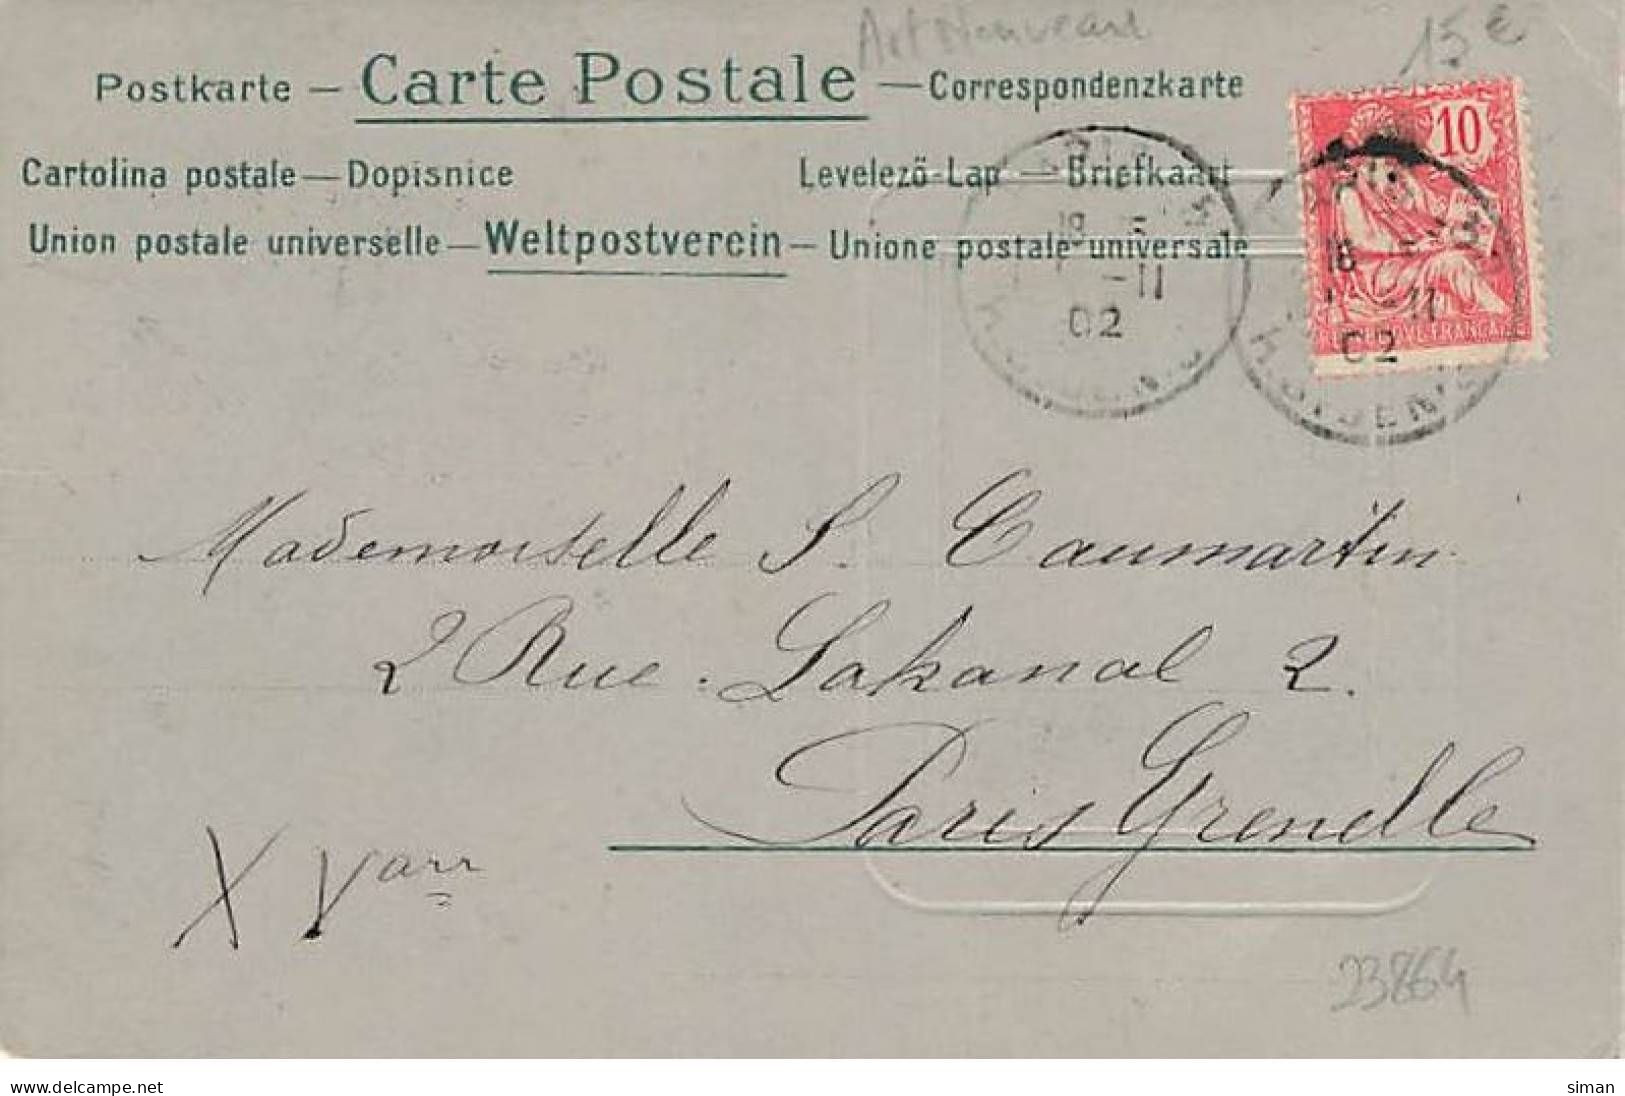 Art Nouveau 15 €
Postkarte – Carte Postale – Correspondenzkarte
Cartolina postale — Dopisnice Levelező-Lap — Briefkaart
Union postale universelle — Weltpostverein – Unione postale universale
10
18
-11
02
18
-11
02
Mademoiselle S. Caumartin
2 Rue Lakanal 2.
Paris Grenelle
XV arr
23864
www.delcampe.net
siman